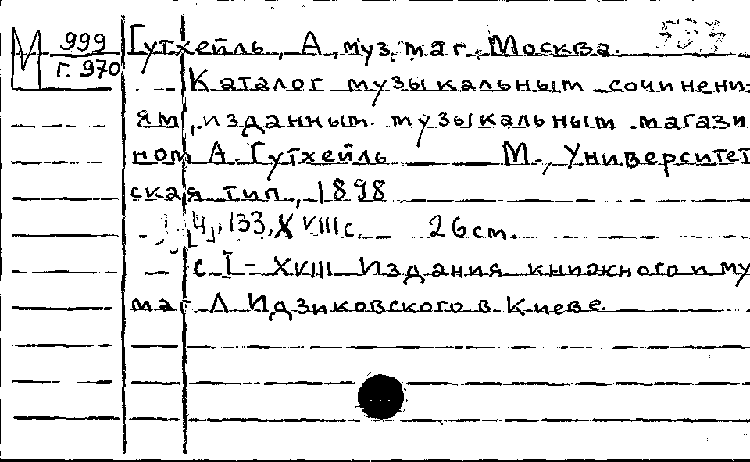 М 999 Гутхейль, А, муз. маг, Москва.
Г. 970 Каталог музыкальным сочинени-
ям, изданным музыкальным магази
ном А. Гутхейль М., Университет
ская тип, 1898
133, XVIII с. 26 cm.
с I - XVIII Издания книжного и му
маг Л Идзиковского в Киеве